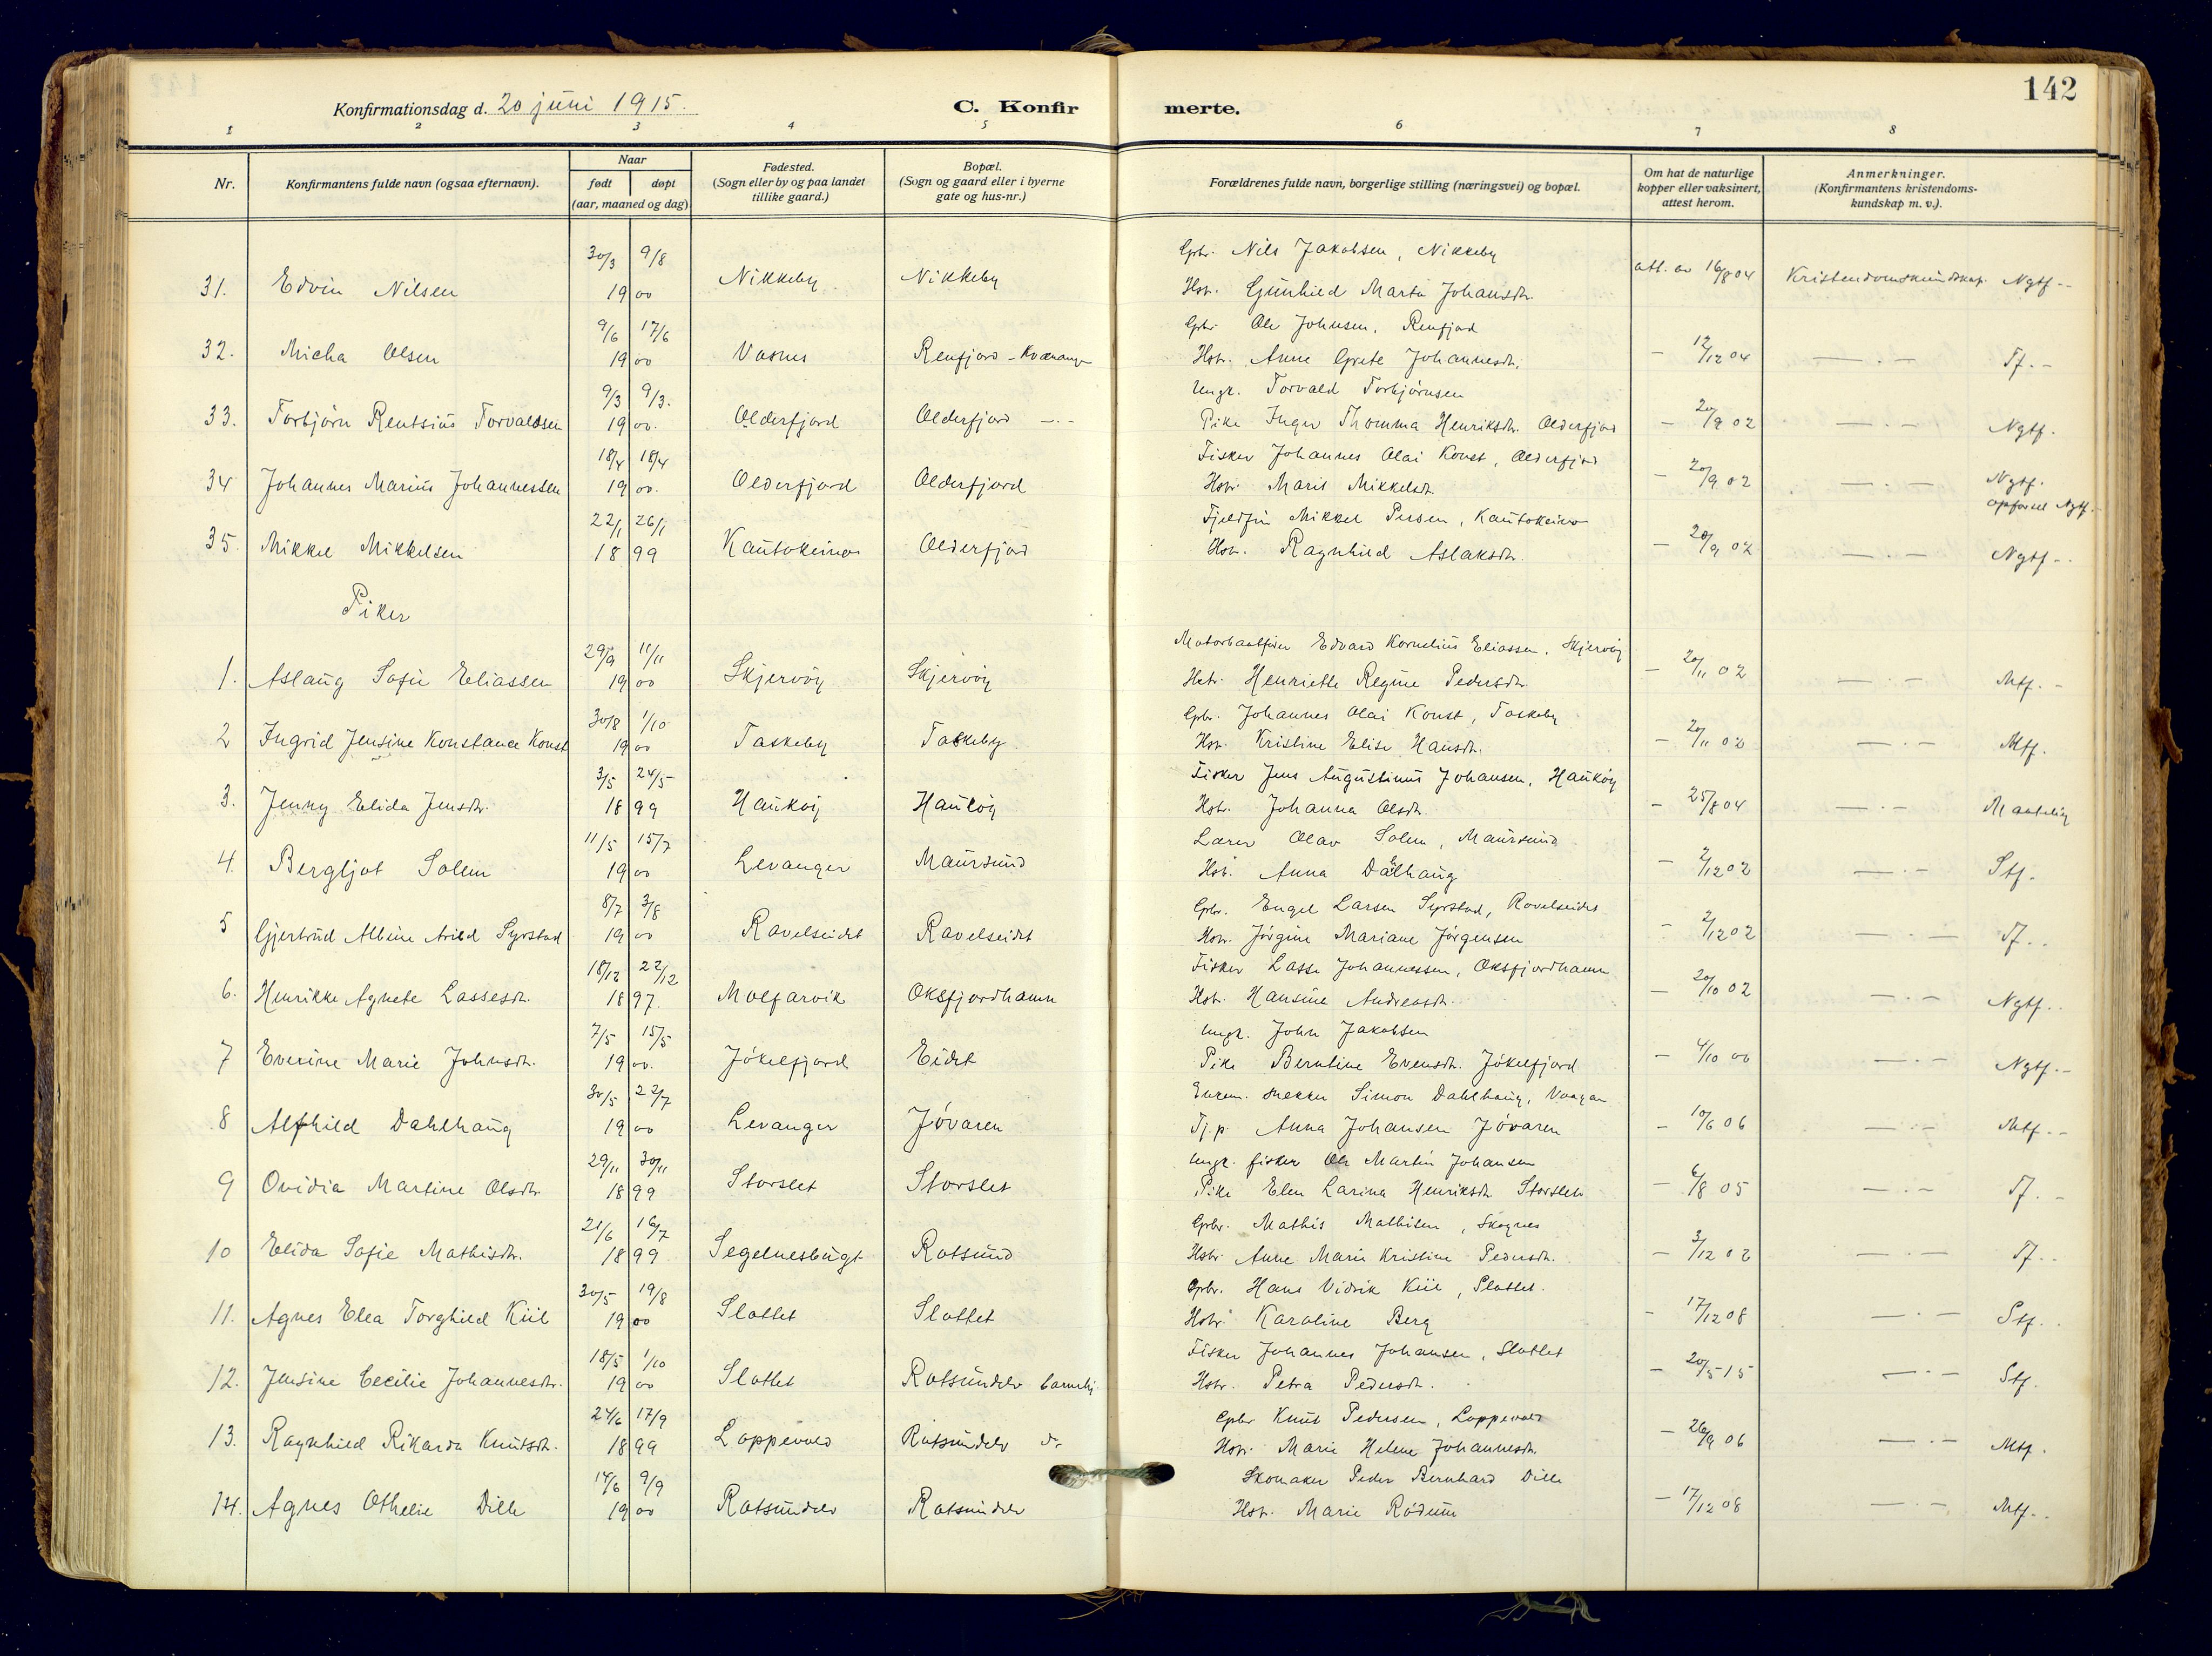 142
Konfirmationsdag d. 20 juni 1915.
C. Konfirmerte.
1 2 3 4 5 6 7 8
Nr.
Konfirmantens fulde navn (ogsaa efternavn).
Naar
født døpt
(aar, maaned og dag)
Fødested.
(Sogn eller by og paa landet
tillike gaard.)
Bopæl.
(Sogn og gaard eller i byerne
gate og hus-nr.)
Forældrenes fulde navn, borgerlige stilling (næringsvei) og bopæl.
Om hat de naturlige
kopper eller vaksinert,
attest herom.
Anmerkninger.
(Konfirmantens kristendoms-
kundskap m. v.).
30/3 9/8 Gbr. Nils Jakobsen, Nikkeby
31. Edvin Nilsen 19 00 Nikkeby Nikkeby Hstr. Gunhild Marta Johansdtr. att. av 16/8 04 Kristendomskundskap. Ngtf.
9/6 17/6 Gbr. Ole Johnsen, Renfjord
32. Micha Olsen 19 00 Vasnes Renfjord - Kvænangen Hstr. Anne Grete Johannesdtr. - 12/12 04 — . — Tf.
9/3 9/3. Ungk. Torvald Torbjørnsen
33. Torbjørn Rentsius Torvaldsen 19 00. Olderfjord Olderfjord —.- Pike Inger Thomma Henriksdtr. Olderfjord - 20/9 02 — . — Ngtf.
18/4 18/4 Fisker Johannes Olai Konst, Olderfjord
34 Johannes Marius Johannessen 19 00. Olderfjord Olderfjord Hstr. Marit Mikkelsdtr. - 20/9 02 — . — Ngtf.
opførsel Ngtf.
22/1 26/1 Fjeldfin Mikkel Persen, Kautokeino
35. Mikkel Mikkelsen 18 99 Kautokeino Olderfjord Hstr. Ragnhild Aslaksdtr. - 20/9 02 — . — Ngtf.
Piker
29/9 11/11 Motorbaatfører Edvard Kornelius Eliassen, Skjervöy
1. Aslaug Sofie Eliassen 19 00 Skjervöy Skjervöy Hstr. Henriette Regine Pedersdtr. - 20/11 02 — . — Mtf.
30/8 1/10 Gbr. Johannes Olai Konst, Taskeby
2 Ingrid Jensine Konstance Konst 19 00 Taskeby Taskeby Hstr. Kristine Elise Hansdtr. - 20/11 02 — . — Mtf.
3/5 24/5 Fisker Jens Augustinus Johansen, Hauköy
3. Jenny Elida Jensdtr. 18 99 Hauköy Hauköy Hstr. Johanna Olsdtr. - 25/8 04 — . — Maatelig
11/5 15/7 Lærer Olav Solem, Maursund
4. Bergljot Solem 19 00 Levanger Maursund Hstr. Anna Dalhaug - 2/12 02 — . — Stf.
8/7 3/8 Gbr. Engel Larsen Syrstad, Ravelseidet
5 Gjertrud Albine Arild Syrstad 19 00 Ravelseidet Ravelseidet Hstr. Jörgine Mariane Jörgensen - 2/12 02 — . — Tf.
18/12 22/12 Fisker Lasse Johannessen, Oksfjordhamn
6. Henrikke Agnete Lassesdtr. 18 97. Molfarvik Oksfjordhamn Hstr. Hansine Andreasdtr. - 20/10 02 — . — Ngtf.
7/5 15/5 Ungk. John Jakobsen
7 Everine Marie Johnsdtr. 19 00. Jökelfjord Eidet Pike Berntine Evensdtr. Jökelfjord - 4/10 00 — . — Ngtf.
30/5 22/7 Simon Dahlhaug, Vaagan
8 Alfhild Dahlhaug 19 00 Levanger Jövaren Tj.p. Anna Johansen Jövaren - 10/6 06 — . — Mtf.
29/11 30/11 Ungk. fisker Ole Martin Johansen
9 Ovidia Martine Olsdtr. 18 99 Storslet Storslet Pike Elen Larina Henriksdtr. Storslet - 6/8 05 — . — Tf.
21/6 16/7 Gbr. Mathis Mathisen, Skognes
10 Elida Sofie Mathisdtr. 18 99 Segelnesbugt Rotsund Hstr. Anne Marie Kristine Pedersdtr. - 3/12 02 — . — Tf.
30/5 19/8 Gbr. Hans Vidrik Kiil, Slottet.
11. Agnes Elea Torghild Kiil 19 00 Slottet Slottet Hstr. Karoline Berg - 17/12 08 — . — Stf.
18/5 1/10 Fisker Johannes Johansen, Slottet
12. Jensine Cecilie Johannesdtr. 19 00 Slottet Rotsundelv barnehj. Hstr. Petra Pedersdtr. - 20/5 15 — . — Stf.
24/6 17/9 Gbr. Knut Pedersen, Loppevold
13. Ragnhild Rikarda Knutsdtr. 18 99 Loppevold Rotsundelv do Hstr. Marie Helene Johannesdtr. - 26/9 06 — . — Mtf.
14/6 9/9 Skomaker Peder Bernhard Dille
14. Agnes Othelie Dille 19 00 Rotsundelv Rotsundelv Hstr. Marie Rödum - 17/12 08 — . — Mtf.